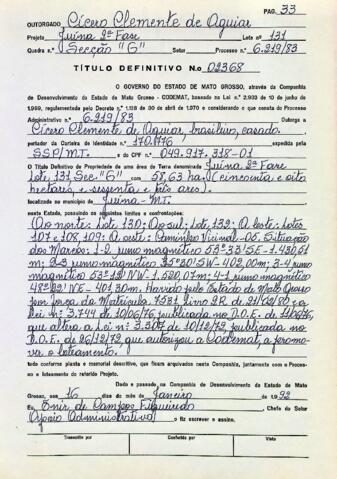 PAG. 33
OUTORGADO Cícero Clemente de Aguiar
Projeto Juína 2ª Fase Lote n.º 131
Quadra n.º Secção "G" Setor Processo n.º 6.219/83
TÍTULO DEFINITIVO N.o 02368
O GOVERNO DO ESTADO DE MATO GROSSO, através da Companhia
de Desenvolvimento do Estado de Mato Grosso - CODEMAT, baseado na Lei n.º 2.933 de 10 de junho de
1.969, regulamentada pelo Decreto n.º 1.128 de 30 de abril de 1.970 e considerando o que consta do Processo
Administrativo n.º 6.219/83 Outorga a
Cícero Clemente de Aguiar, brasileiro, casado.
portador da Carteira de Identidade n.º 170.1776 expedida pela
SSP/MT. e do CPF n.º 049.917.318-01
O Título Definitivo de Propriedade de uma área de Terra denominada Juína 2ª Fase
Lote, 131 Sec "G" com 58,63 ha. (cincoenta e oito
hectares, e sessenta e três ares).
localizada no município de Juína - MT.
neste Estado, possuindo os seguintes limites e confrontações:
(Ao norte: Lote 130; Ao sul: Lote 132; A leste: Lotes
107 e 108, 109: A oeste: Caminho Vicinal-05. Situação
dos Marcos: 1-2 rumo magnético 53º33'SE-1.430,51
m; 2-3 rumo magnético 35º30'SW-402,00m; 3-4 rumo
magnético 53º12'NW-1.520,07m; 4-1 rumo magnético
48º22'NE-401,30m. Havido pelo Estado de Mato Grosso
por força da Matrícula 7581 livro 2R de 21/02/80; a
Lei nº 3.744 de 10/06/76, publicada no D.O.E. de 11/06/76,
que altera a Lei nº 3.307 de 18/12/72, publicada no
D.O.E. de 26/12/72, que autorizou a Codemat, a promo-
ver o loteamento.
tudo conforme planta e memorial descritivo, que ficam arquivados nesta Companhia, juntamente com o Proces-
so e loteamento do referido Projeto.
Dado e passado na Companhia de Desenvolvimento do Estado de Mato
Grosso, em 16 dias do mês de Janeiro de 1.992
Eu, Enir de Campos Figueiredo Chefe do Setor
(Apoio Administrativo) o fiz escrever e assino.
Transcrito por Conferido por Visto